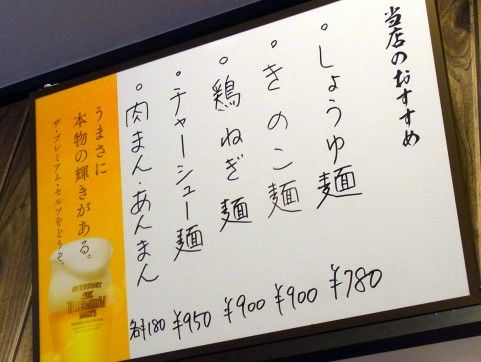 当店のおすすめ
。しょうゆ麺 ¥780
。きのこ麺 ¥900
。鶏ねぎ麺 ¥900
。チャーシュー麺 ¥950
。肉まん・あんまん 各¥180
うまさに
本物の輝きがある。
ザ・プレミアム・モルツをどうぞ。
SUNTORY
THE
PREMIUM
MALT'S